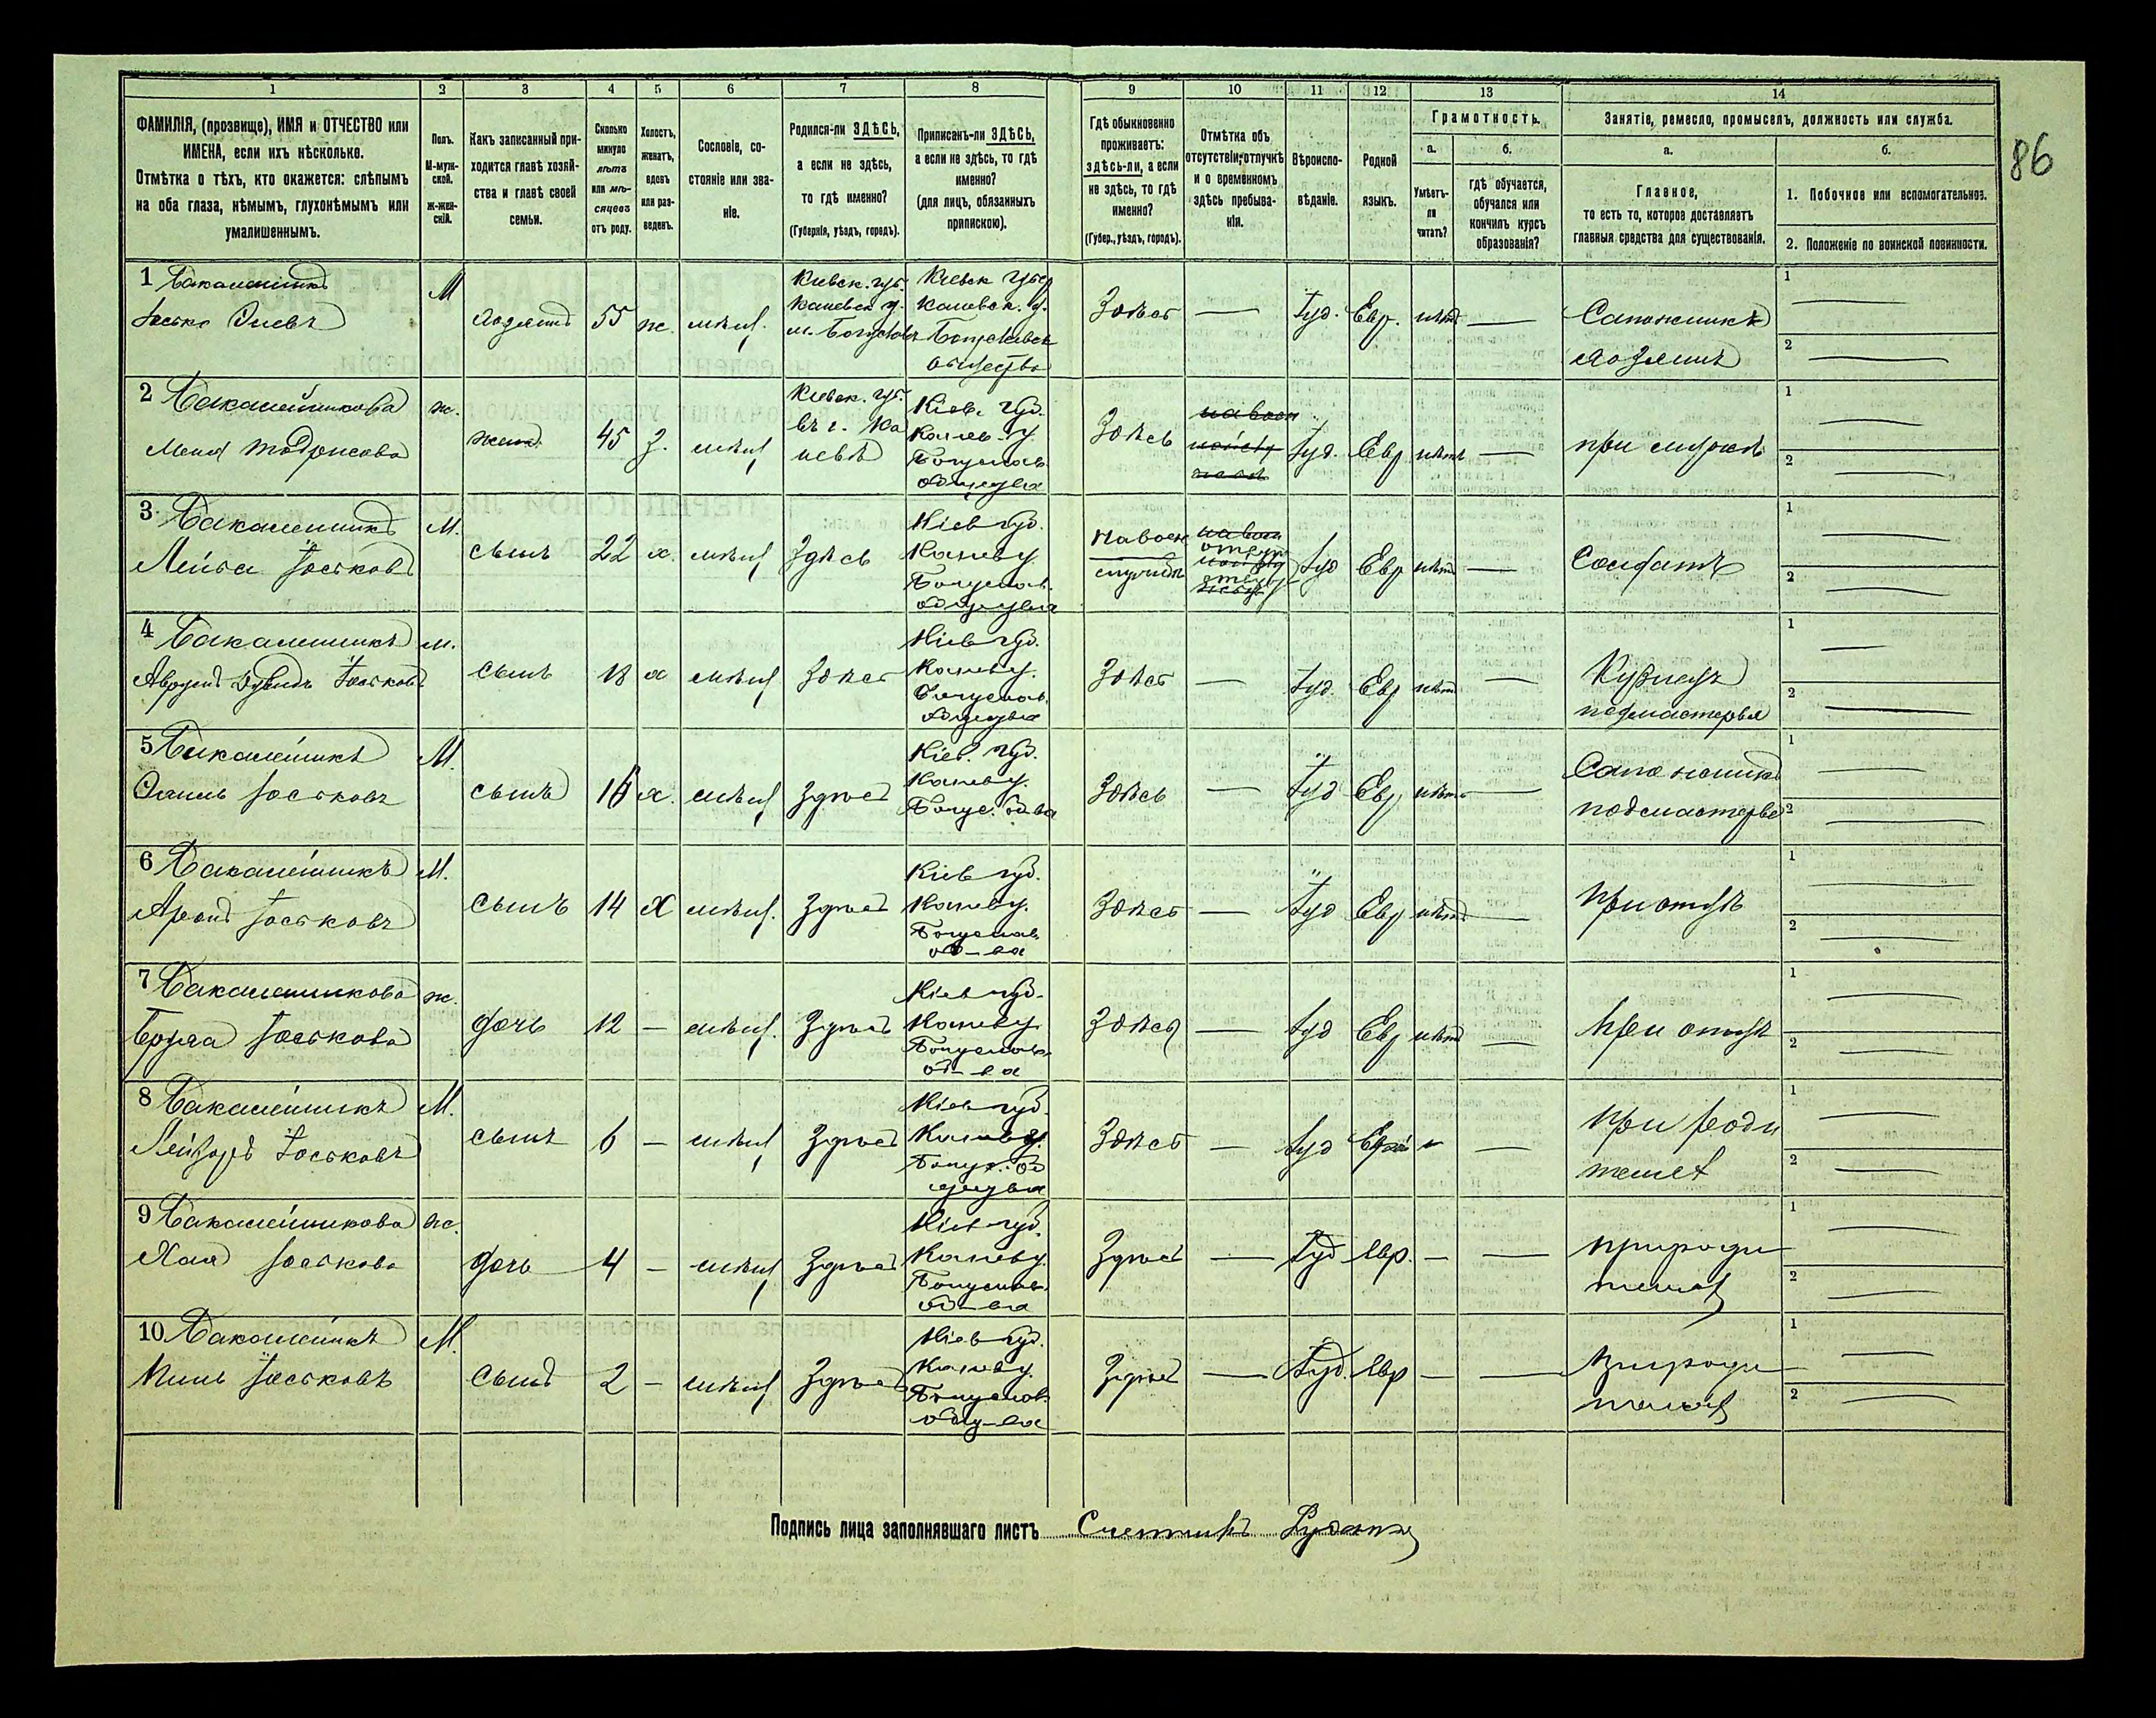 86
1 2 3 4 5 6 7 8 9 10 11 12 13 14
ФАМИЛІЯ, (прозвище), ИМЯ и ОТЧЕСТВО или
ИМЕНА, если ихъ нѣсколько.
Отмѣтка о тѣхъ, кто окажется: слѣпымъ
на оба глаза, нѣмымъ, глухонѣмымъ или
умалишеннымъ.
Полъ.
М-муж-
ской.
Ж-жен-
скій.
Какъ записанный при-
ходится главѣ хозяй-
ства и главѣ своей
семьи.
Сколько
минуло
лѣтъ
или мѣ-
сяцевъ
отъ роду.
Холостъ,
женатъ,
вдовъ
или раз-
веденъ.
Сословіе, со-
стояніе или зва-
ніе.
Родился-ли ЗДѢСЬ,
а если не здѣсь,
то гдѣ именно?
(Губернія, уѣздъ, городъ).
Приписанъ-ли ЗДѢСЬ,
а если не здѣсь, то гдѣ
именно?
(для лицъ, обязанныхъ
припискою).
Гдѣ обыкновенно
проживаетъ:
здѣсь-ли, а если
не здѣсь, то гдѣ
именно?
(Губер., уѣздъ, городъ).
Отмѣтка объ
отсутствіи, отлучкѣ
и о временномъ
здѣсь пребыва-
ніи.
Вѣроиспо-
вѣданіе.
Родной
языкъ.
Грамотность.
а.
Умѣетъ-
ли
читать?
б.
гдѣ обучается,
обучался или
кончилъ курсъ
образованія?
Занятіе, ремесло, промыселъ, должность или служба.
а.
Главное,
то есть то, которое доставляетъ
главныя средства для существованія.
б.
1. Побочное или вспомогательное.
2. Положеніе по воинской повинности.
1 Бакалейникъ
Іосько
М
хозяинъ
55
ж.
мѣщ.
Кіевск. губ.
Каневск. у.
м. Богуславъ
Кіевск губер
Каневск. у.
Богуславск
общества
Здѣсь
Іуд.
Евр.
нѣтъ
Сапожникъ
хозяинъ
1
2
2 Бакалейникова
ж.
жена
45
з.
мѣщ
Кіевск. губ.
въ г. Ка
невѣ
Кіев. губ.
Канев. у
Богуслав.
общества
Здѣсь
Іуд.
Евр
нѣтъ
при мужѣ
1
2
3 Бакалейникъ
Лейба Іоськовъ
М.
сынъ
22
х.
мѣщ
Здѣсь
Кіев губ.
Канев у
Богуслав.
общества
На воен
службѣ
Іуд
Евр
нѣтъ
Солдатъ
1
2
4 Бакалейникъ
Іоськовъ
м.
сынъ
18
х
мѣщ
Здѣсь
Кіев губ.
Канев у.
Богуслав.
общества
Здѣсь
Іуд.
Евр
нѣтъ
Кузнецъ
подмастерья
1
2
5 Бакалейникъ
Іоськовъ
М.
сынъ
х.
мѣщ
Здѣсь
Кіев. губ.
Канев у.
Богус. об-ва
Здѣсь
Іуд
Евр
нѣтъ
Сапожникъ
подмастерье
1
2
6 Бакалейникъ
Аронъ Іоськовъ
М.
сынъ
14
х
мѣщ.
Здѣсь
Кіев губ.
Канев у.
Богуслав.
об-ва
Здѣсь
Іуд
Евр
нѣтъ
При отцѣ
1
2
7 Бакалейникова
Іоськова
ж.
дочь
12
мѣщ.
Здѣсь
Кіев губ.
Канев у
Богуслав.
об-ва
Здѣсь
Іуд
Евр
нѣтъ
При отцѣ
1
2
8 Бакалейникъ
Лейзоръ Іоськовъ
М.
сынъ
6
мѣщ
Здѣсь
Кіев губ.
Канев у.
Богус. об
щества
Здѣсь
Іуд
При роди
телях
1
2
9 Бакалейникова
Хая Іоськова
ж.
дочь
4
мѣщ
Здѣсь
Кіев губ.
Канев у.
Богуслав.
об-ва
Здѣсь
Іуд
Евр.
при роди
телях
1
2
10 Бакалейникъ
Іоськовъ
М.
сынъ
2
мѣщ
Здѣсь
Кіев губ.
Канев у.
Богуслав.
общ-ва
Здѣсь
Іуд.
Евр
при роди
телях
1
2
Подпись лица заполнявшаго листъ Счетчикъ